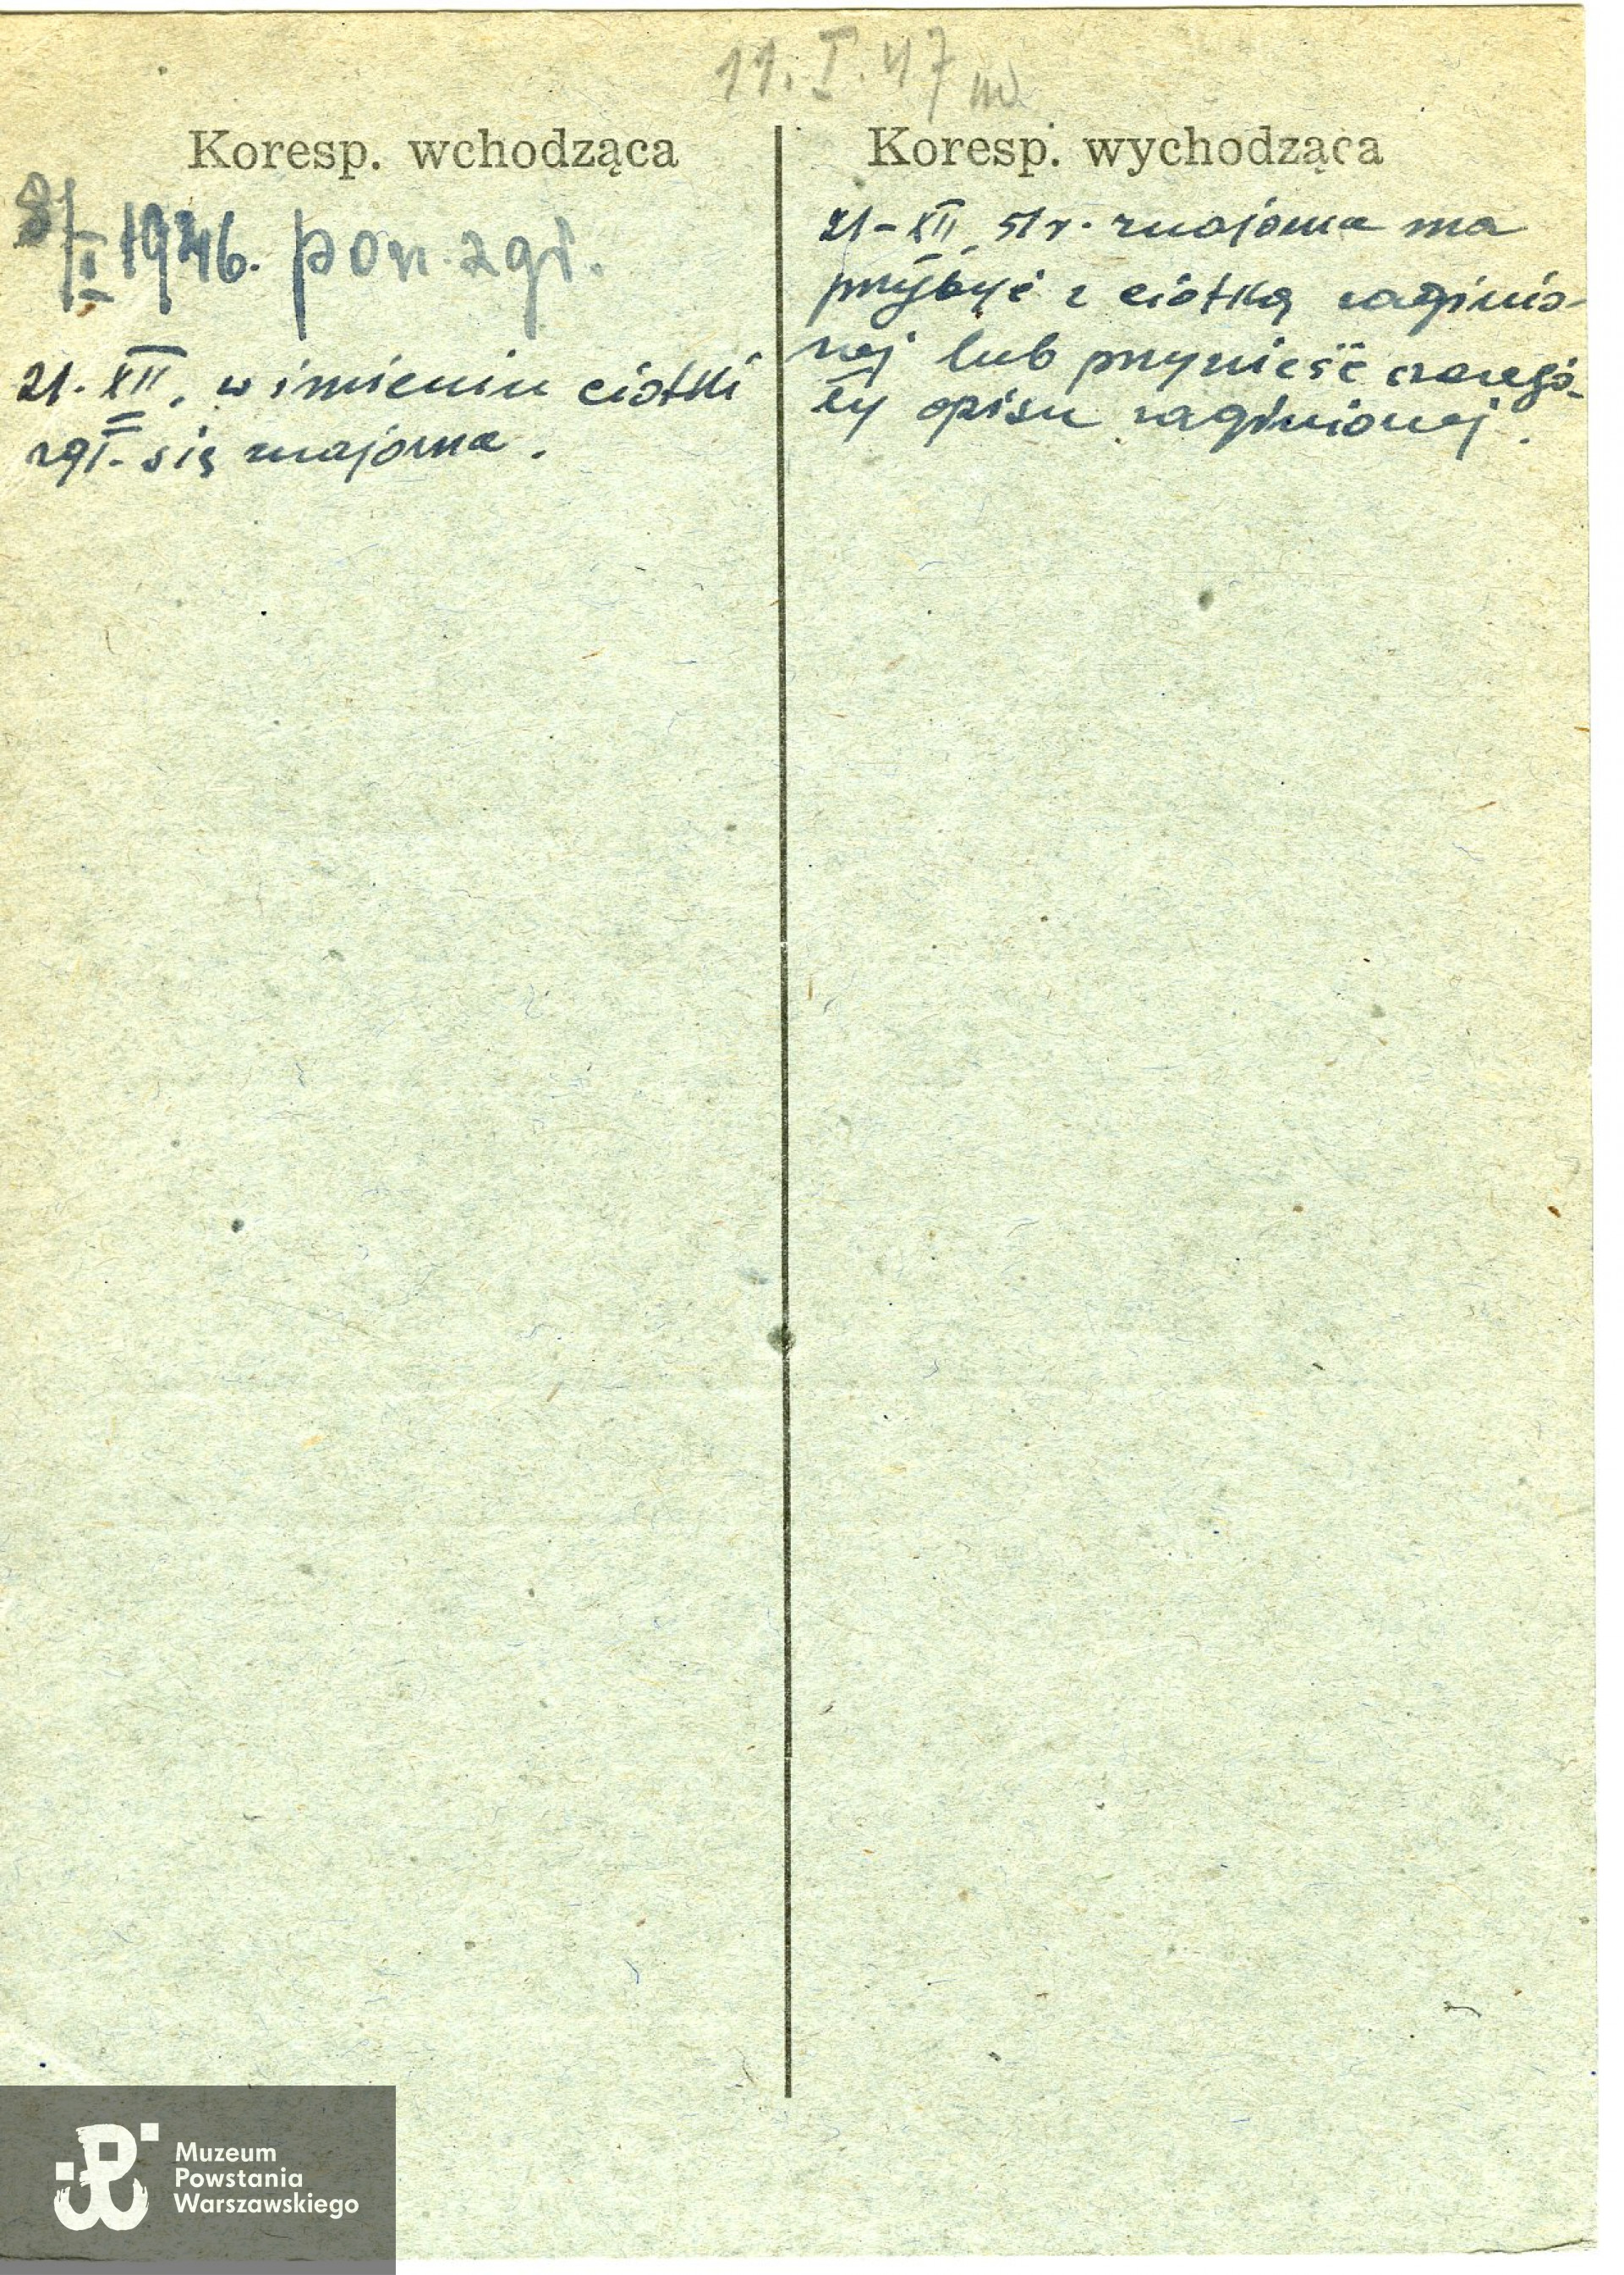 11. I. 47
Koresp. wchodząca
8/II 1946. pon. zgł.
21. XII. w imieniu ciotki
zgł. się znajoma.
Koresp. wychodząca
21-XII, str. znajoma ma
przybyć z ciotką zaginio-
nej lub przynieść szczegó-
ły opisu zaginionej.
Muzeum
Powstania
Warszawskiego